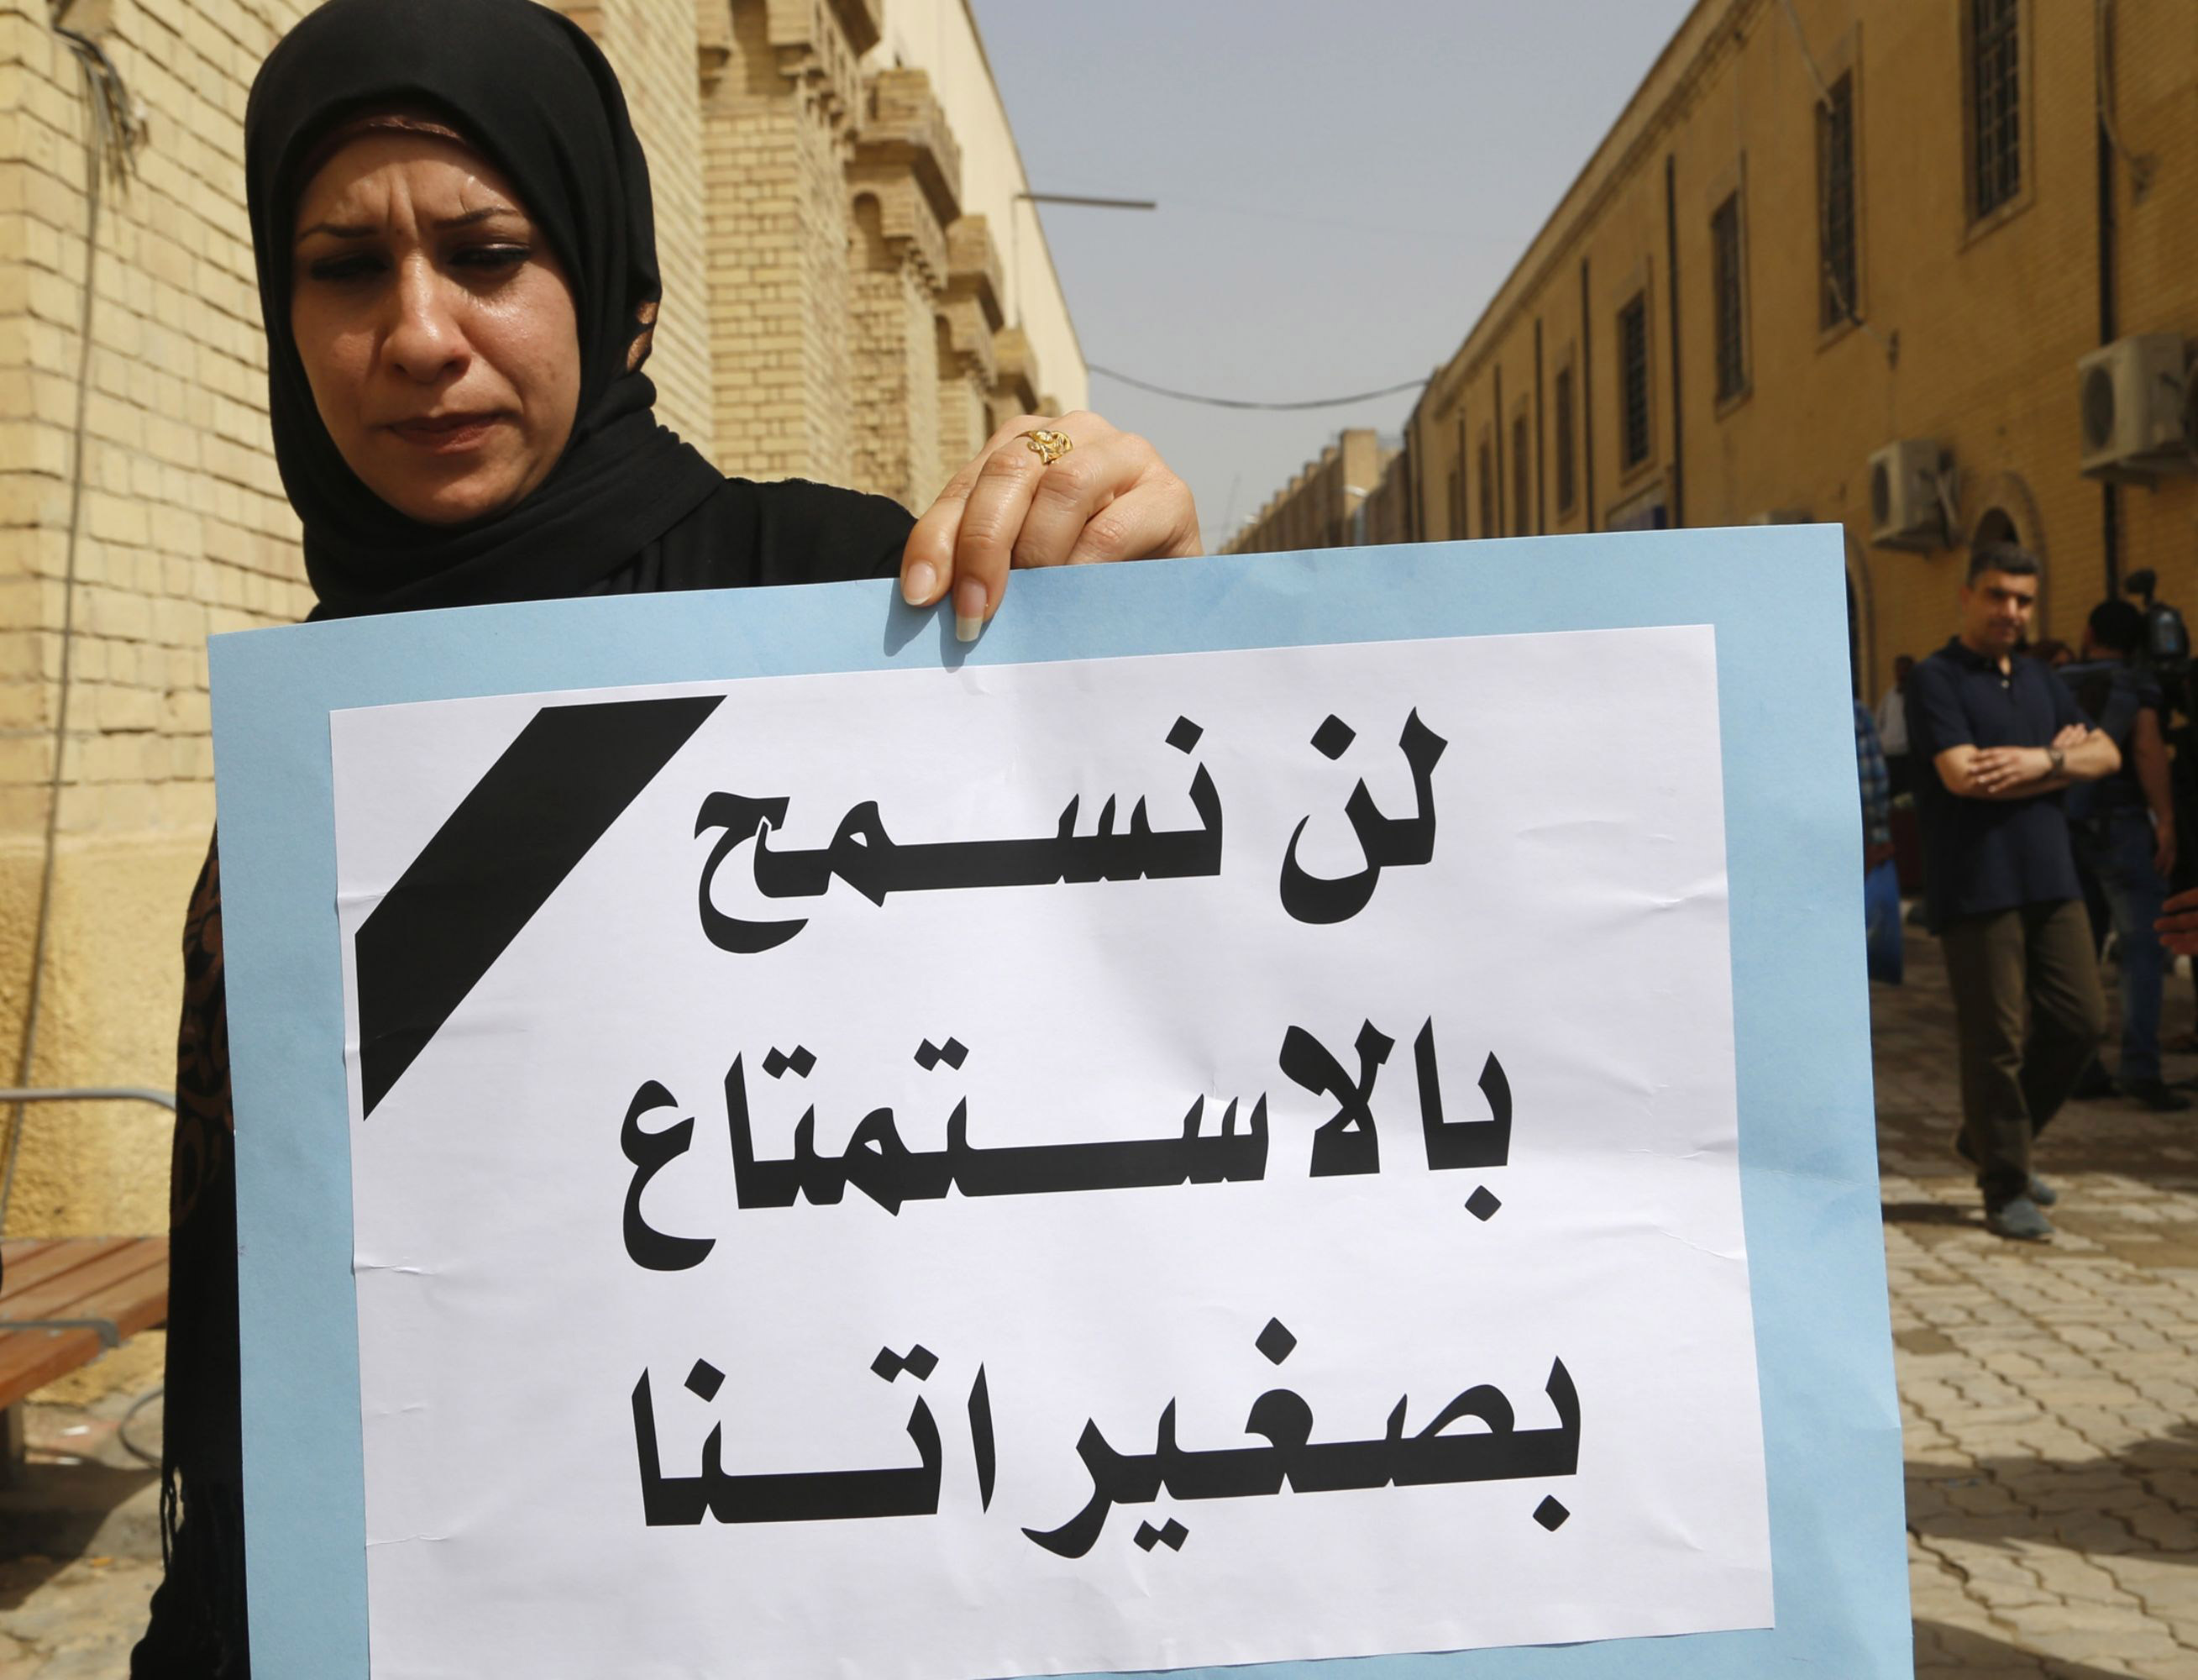 لن نسمح
بالاستمتاع
بصغيراتنا